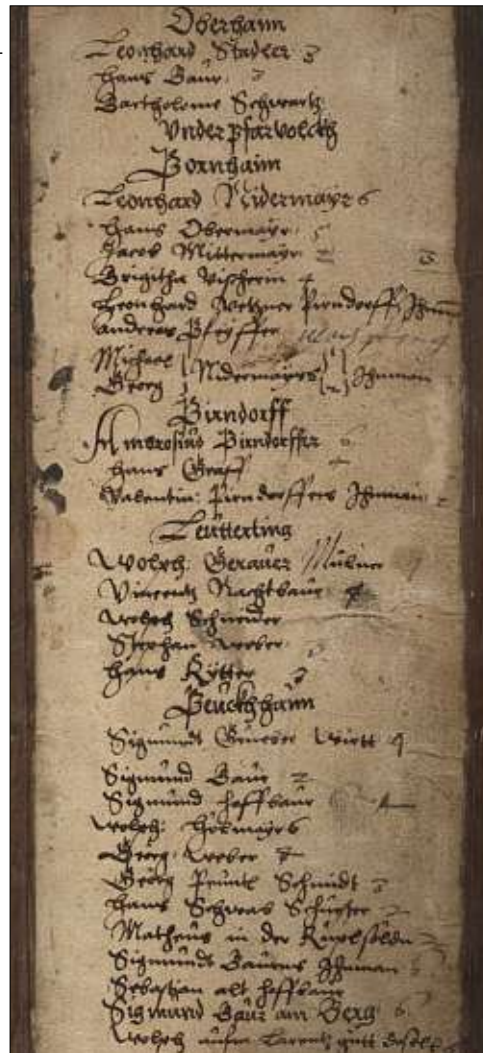 Oberhaim
Leonhard Stadler 3
Hans Baur. 3
Bartholome Schwartz
Underpfarvolckh
Pornhaim
Leonhard Nidermayr 6
Hans Obermayr. 5
Jacob Mittermayr. 2 3
Brigitha Vischerin 4
Leonhard Pirndorff. Ihman
Andreas Pfeyffer
Michael } Nidermayrs } Ihman
Georg
Pirndorff
Ambrosius Pirndorffer 6
Hans Graff 4
Valentin: Pirndorffers Ihman 2
Leütterting
Wolfh: Gerauer Mülner 9
Vincentz Nachtbaur 4
Wolfh Schneider
Stephan Weber. 3
Hans Rytter 3
Peückhhaim
Sigmundt Grueber Wirtt 9
Sigmund Baur 2
Sigmund Hoffbaur 4
Wolfh: Hökmayr 6
Georg Weber 8
Georg Pruntl Schmidt 3
Hans Schwab Schuster 2
Matheus in der
Sigmundt Baurns Ihman 5
Sebastian alt Hoffbaur
Sigmund Baur am Berg 6
Wolfh aufm Lorentz gutt